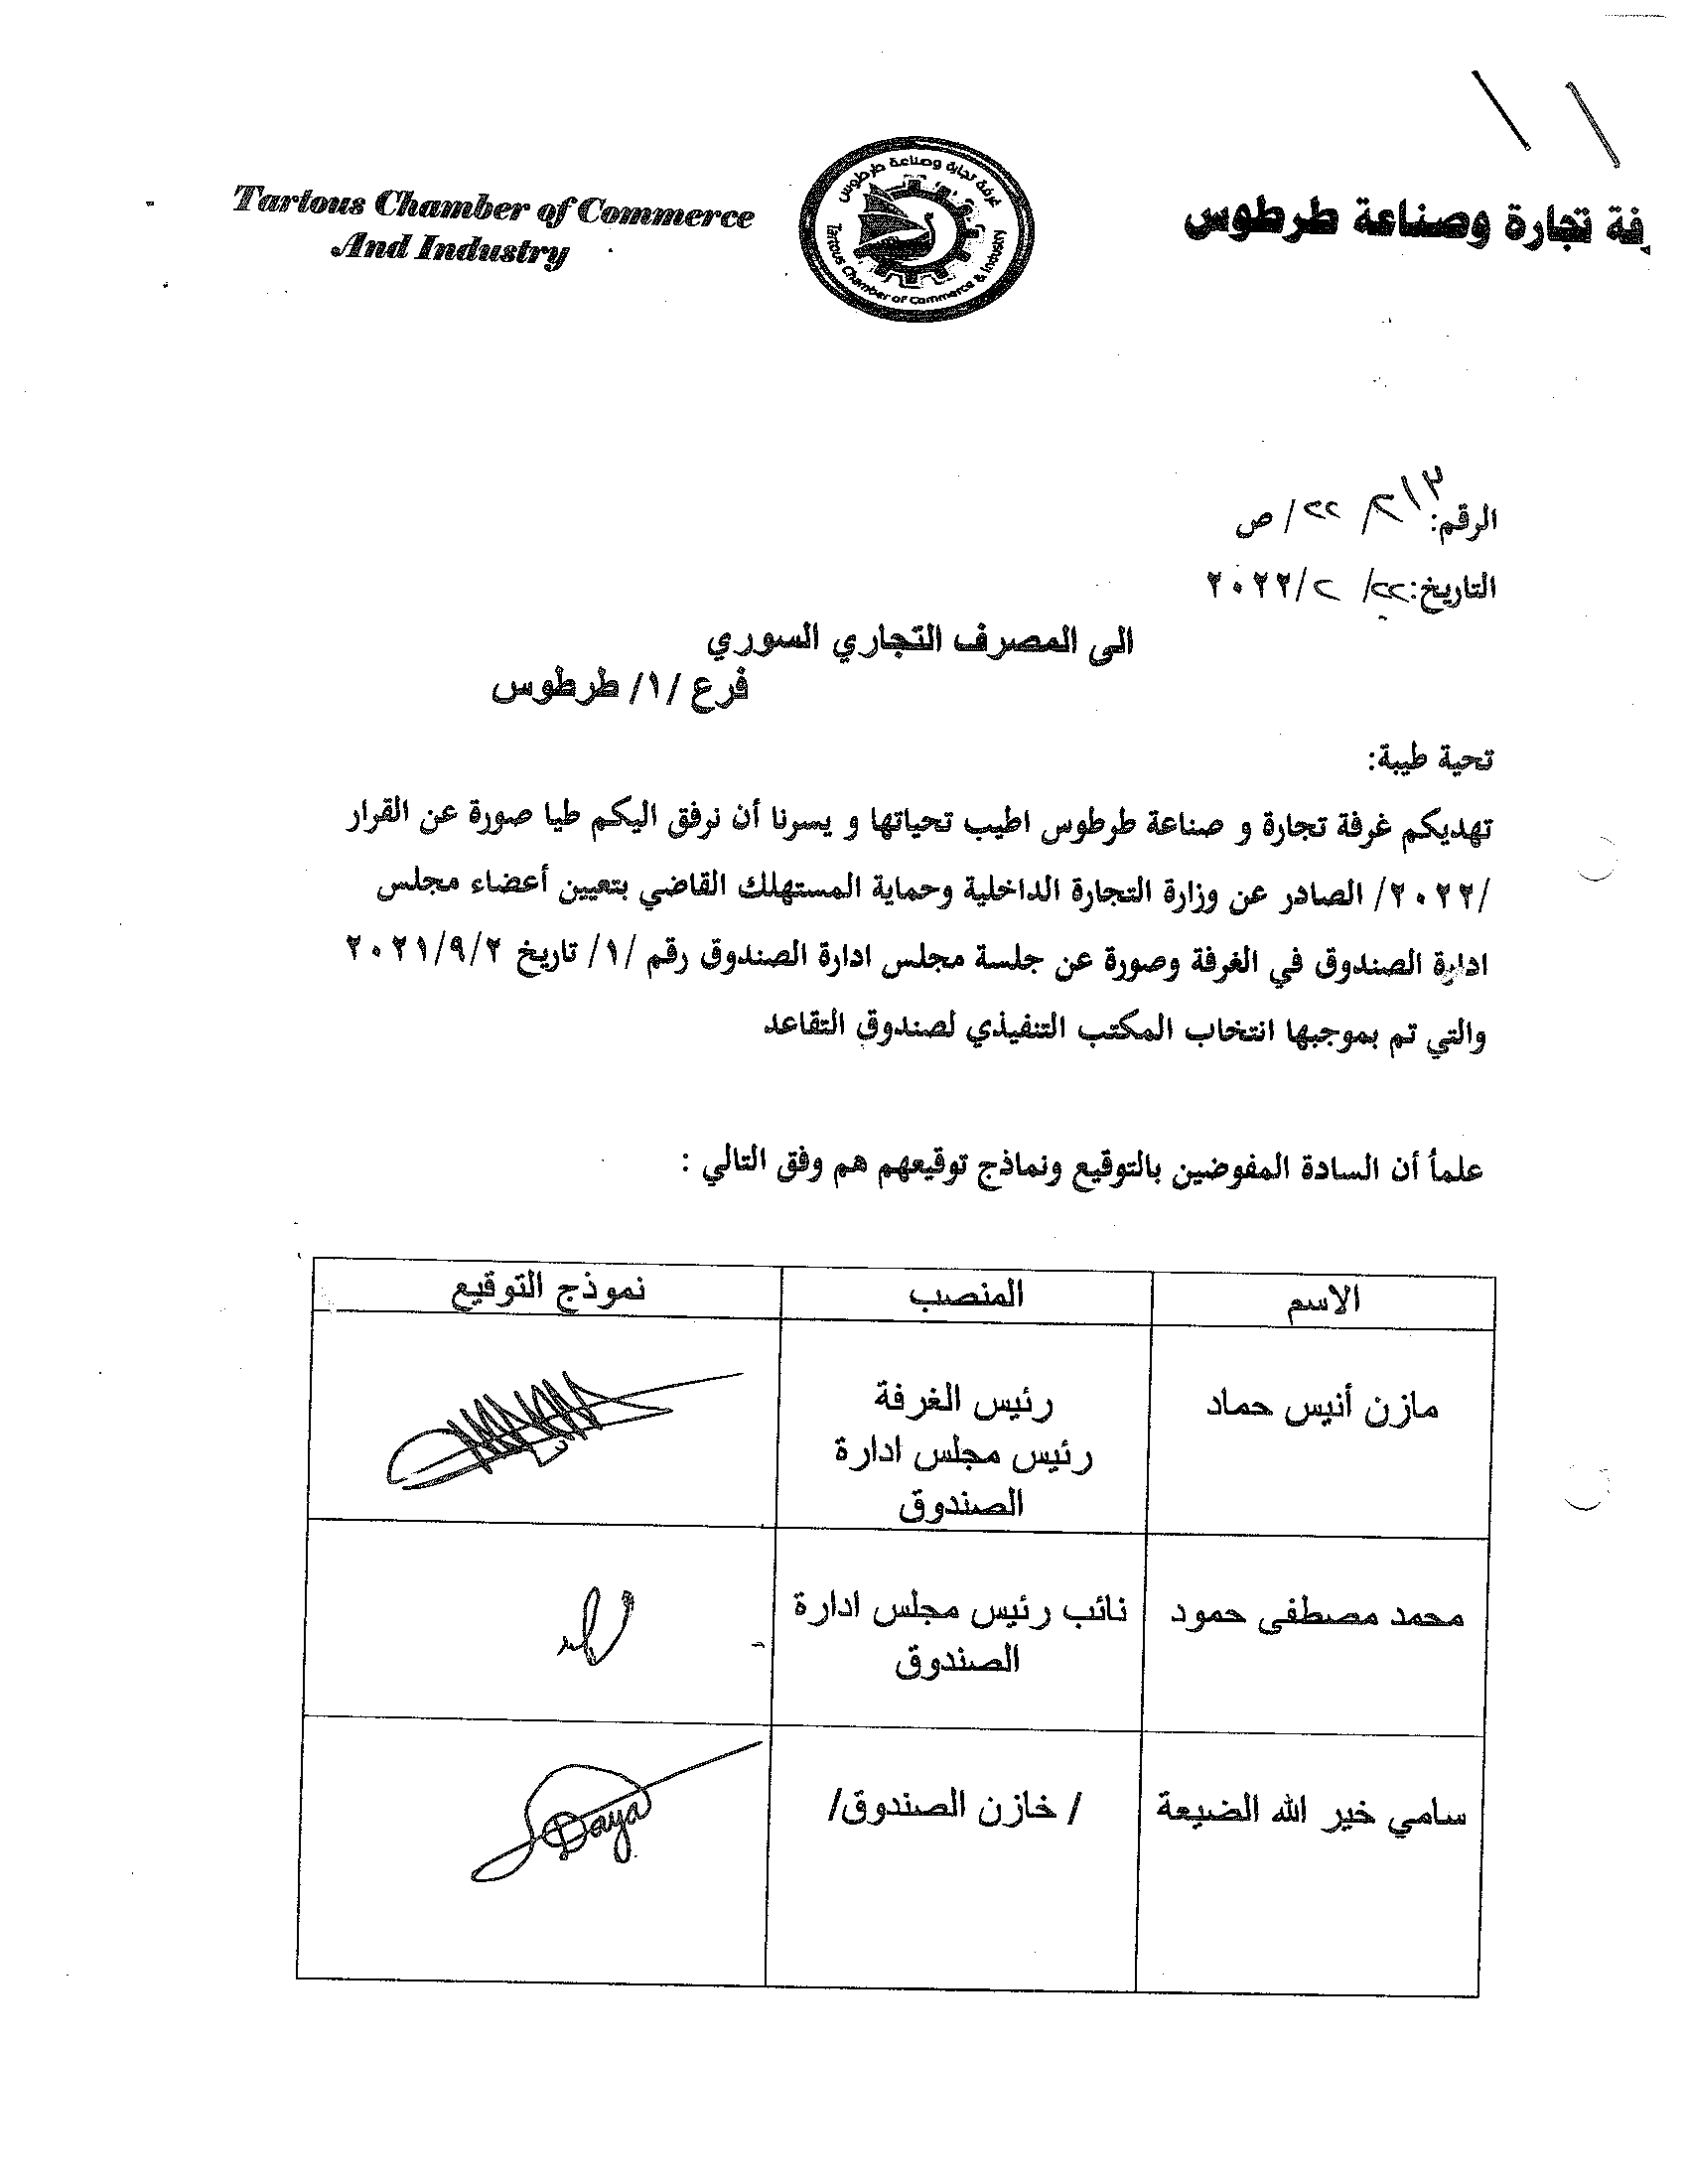 Tartous Chamber of Commerce
And Industry
غرفة تجارة وصناعة طرطوس
Tartous Chamber of Commerce & Industry
فة تجارة وصناعة طرطوس
الرقم: / ٢٢ / ص
التاريخ: ٢٢/ ٢ /٢٠٢٢
الى المصرف التجاري السوري
فرع /١/ طرطوس
تحية طيبة:
تهديكم غرفة تجارة و صناعة طرطوس اطيب تحياتها و يسرنا أن نرفق اليكم طيا صورة عن القرار
/٢٠٢٢/ الصادر عن وزارة التجارة الداخلية وحماية المستهلك القاضي بتعيين أعضاء مجلس
ادارة الصندوق في الغرفة وصورة عن جلسة مجلس ادارة الصندوق رقم /١/ تاريخ ٢٠٢١/٩/٢
والتي تم بموجبها انتخاب المكتب التنفيذي لصندوق التقاعد
علماً أن السادة المفوضين بالتوقيع ونماذج توقيعهم هم وفق التالي :
الاسم المنصب نموذج التوقيع
مازن أنيس حماد رئيس الغرفة
رئيس مجلس ادارة
الصندوق
محمد مصطفى حمود نائب رئيس مجلس ادارة
الصندوق
سامي خير الله الضيعة / خازن الصندوق/
Daya